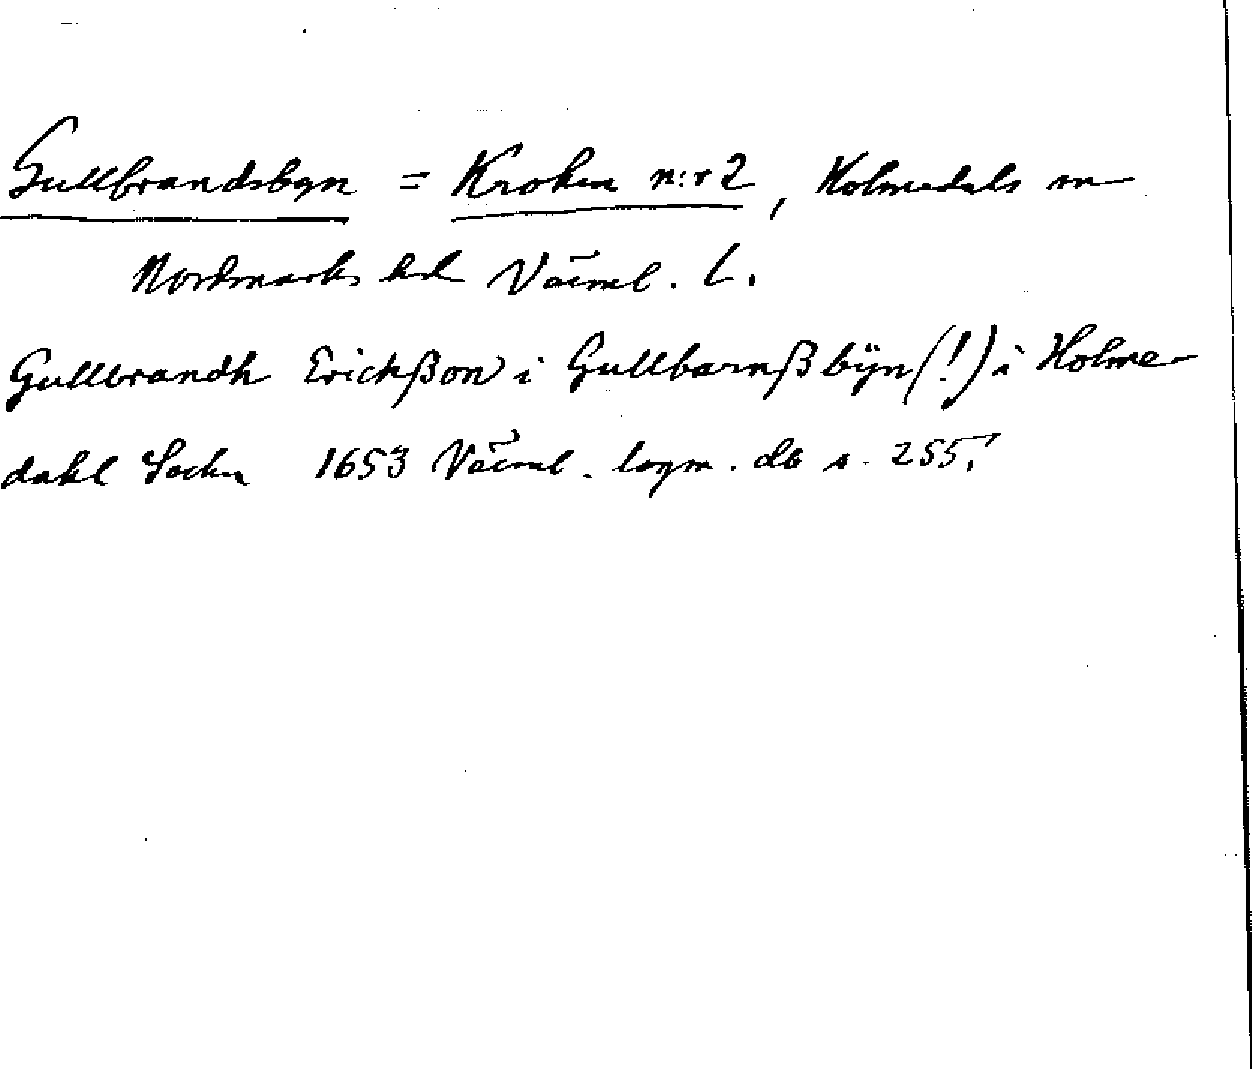 Gullbrandsbyn = Kroken n:r 2, Holmedals sn
Nordmarks hd Värml. l.
Gullbrandh Erichßon i Gullbarnßbÿn (!) i Holme-
dahl Sochn 1653 Värml. lagm. db s. 255.